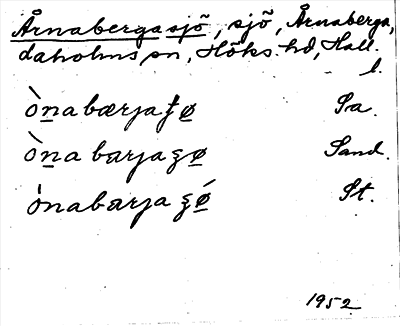 Årnabergasjö, sjö, Årnaberga,
daholms sn, Höks hd, Hall.
l.
ònabærjaʂø Sa.
ònabarjaʂø Sand.
ónabarjaʂǿ St.
1952